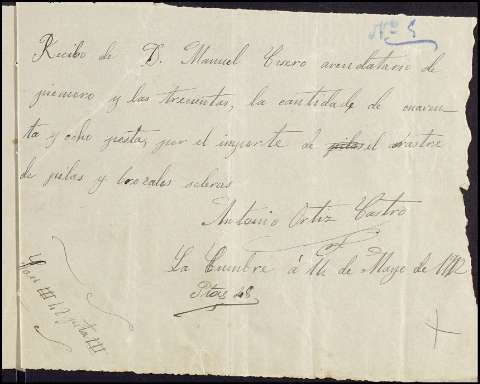 Nº 5
Recibo de D. Manuel Cisero arendatario de
y las trecuentas, la cantidade de cuaren-
ta y ocho pesta, por el importe de pilas el arastre
de pilas y soleras
Antonio Ortiz Castro
La Cumbre á 14 de Mayo de 1912
Ptas 48